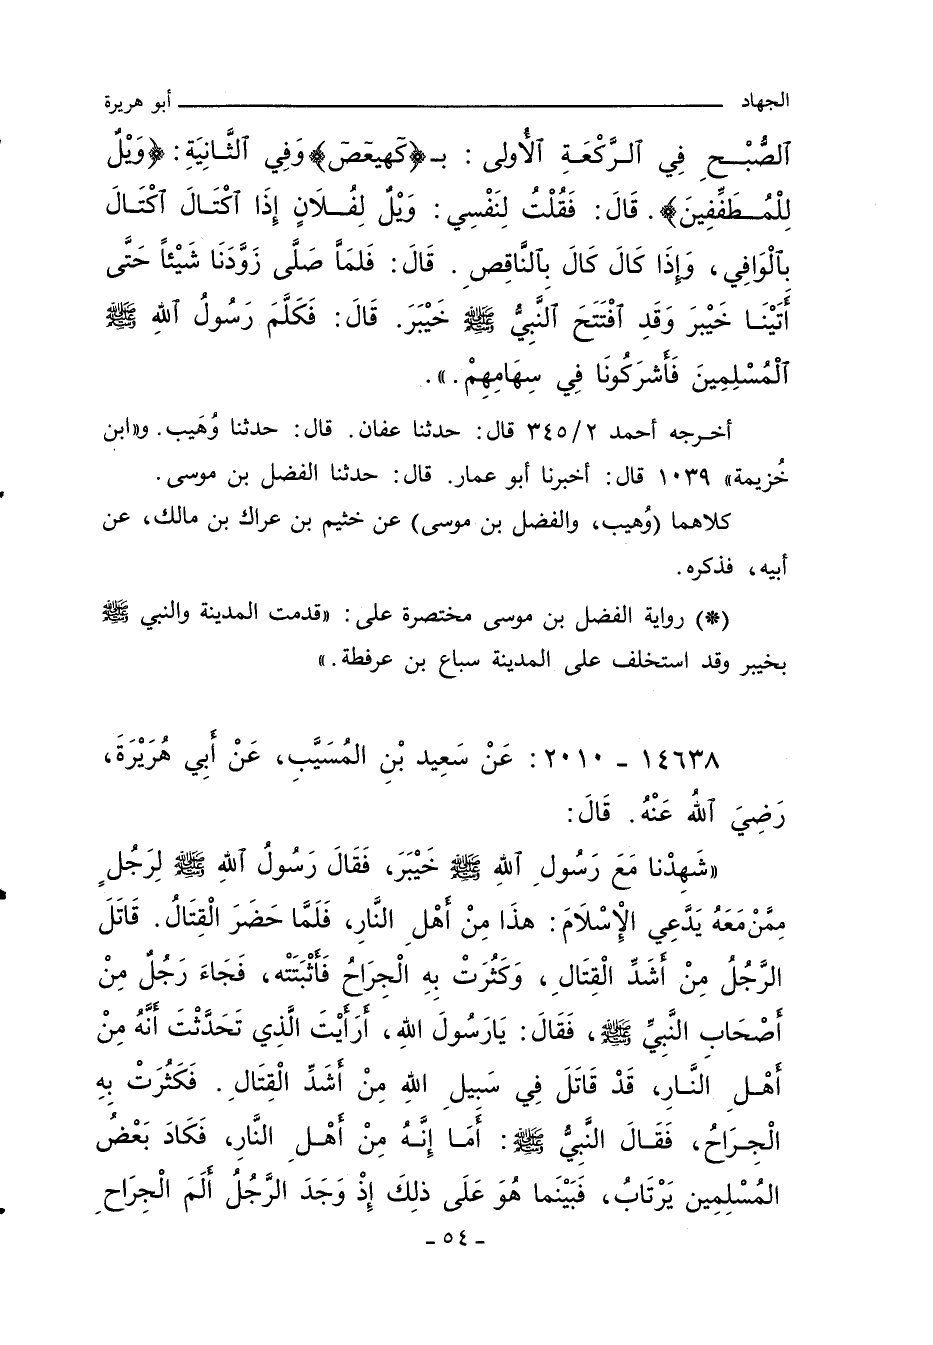 الجهاد ـــــــــــــــــــــــــــــــــ أبو هريرة
ٱلصُّبْـحِ فِي ٱلـرَّكْعَـةِ ٱلْأُولى : بـ﴿كَهيعَصَ﴾ وَفِي ٱلثَّانِيَةِ: ﴿وَيْلٌ
لِلْمُـطَفِّفِينَ﴾. قَالَ: فَقُلْتُ لِنَفْسِي: وَيْلٌ لِفُـلَانٍ إِذَا ٱكْتَـالَ ٱكْتَالَ
بِٱلْوَافِي، وَإِذَا كَالَ كَالَ بِٱلنَّاقِصِ. قَالَ: فَلمَاَّ صَلَّى زَوَّدَنَا شَيْئاً حَتَّى
أَتَيْنَـا خَيْبَرَ وَقَدِ ٱفْتَتَحَ ٱلنَّبِيُّ ﷺ خَيْبَرَ. قَالَ: فَكَلَّمَ رَسُولُ ٱللهِ ﷺ
ٱلْمُسْلِمِينَ فَأَشرَكُونَا فِي سِهَامِهِمْ.».
أخـرجه أحمد ٢/٣٤٥ قال: حدثنا عفان. قال: حدثنا وُهَيب. و«ابن
خُزيمة» ١٠٣٩ قال: أخبرنا أبو عمار. قال: حدثنا الفضل بن موسى.
كلاهما (وُهيب، والفضل بن موسى) عن خثيم بن عراك بن مالك، عن
أبيه، فذكره.
(*) رواية الفضل بن موسى مختصرة على: «قدمت المدينة والنبي ﷺ
بخيبر وقد استخلف على المدينة سباع بن عرفطة.»
١٤٦٣٨ ـ ٢٠١٠: عَنْ سَعِيد بْنِ المُسَيَّبِ، عَنْ أَبِي هُرَيْرَةَ،
رَضِيَ ٱللهُ عَنْهُ. قَالَ:
«شَهِدْنا مَعَ رَسُولِ اللهِ ﷺ خَيْبَرَ، فَقَالَ رَسُولُ اللهِ ﷺ لِرَجُلٍ
مِمَّنْ مَعَهُ يَدَّعِي الْإِسْلَامَ: هذَا مِنْ أَهْلِ النَّارِ، فَلَمَّا حَضَرَ الْقِتَالُ. قَاتَلَ
الرَّجُلُ مِنْ أَشَدِّ الْقِتَالِ، وَكَثُرَتْ بِهِ الْجِرَاحُ فَأَثْبَتَتْه، فَجَاءَ رَجُلٌ مِنْ
أَصْحَابِ النَّبِيِّ ﷺ، فَقَالَ: يَارَسُولَ اللهِ، أَرَأَيْتَ الَّذِي تَحَدَّثْتَ أَنَّهُ مِنْ
أَهْـلِ النَّـارِ، قَدْ قَاتَلَ فِي سَبِيلِ اللهِ مِنْ أَشَدِّ الْقِتَالِ. فَكَثُرَتْ بِهِ
الْجِـرَاحُ، فَقَالَ النَّبِيُّ ﷺ: أَمَـا إِنَّـهُ مِنْ أَهْـلِ النَّارِ، فَكَادَ بَعْضُ
المُسْلِمِين يَرْتَابُ، فَبَيْنَما هُوَ عَلَى ذلِكَ إِذْ وَجَدَ الرَّجُلُ أَلَمَ الْجِرَاحِ
ـ ٥٤ ـ